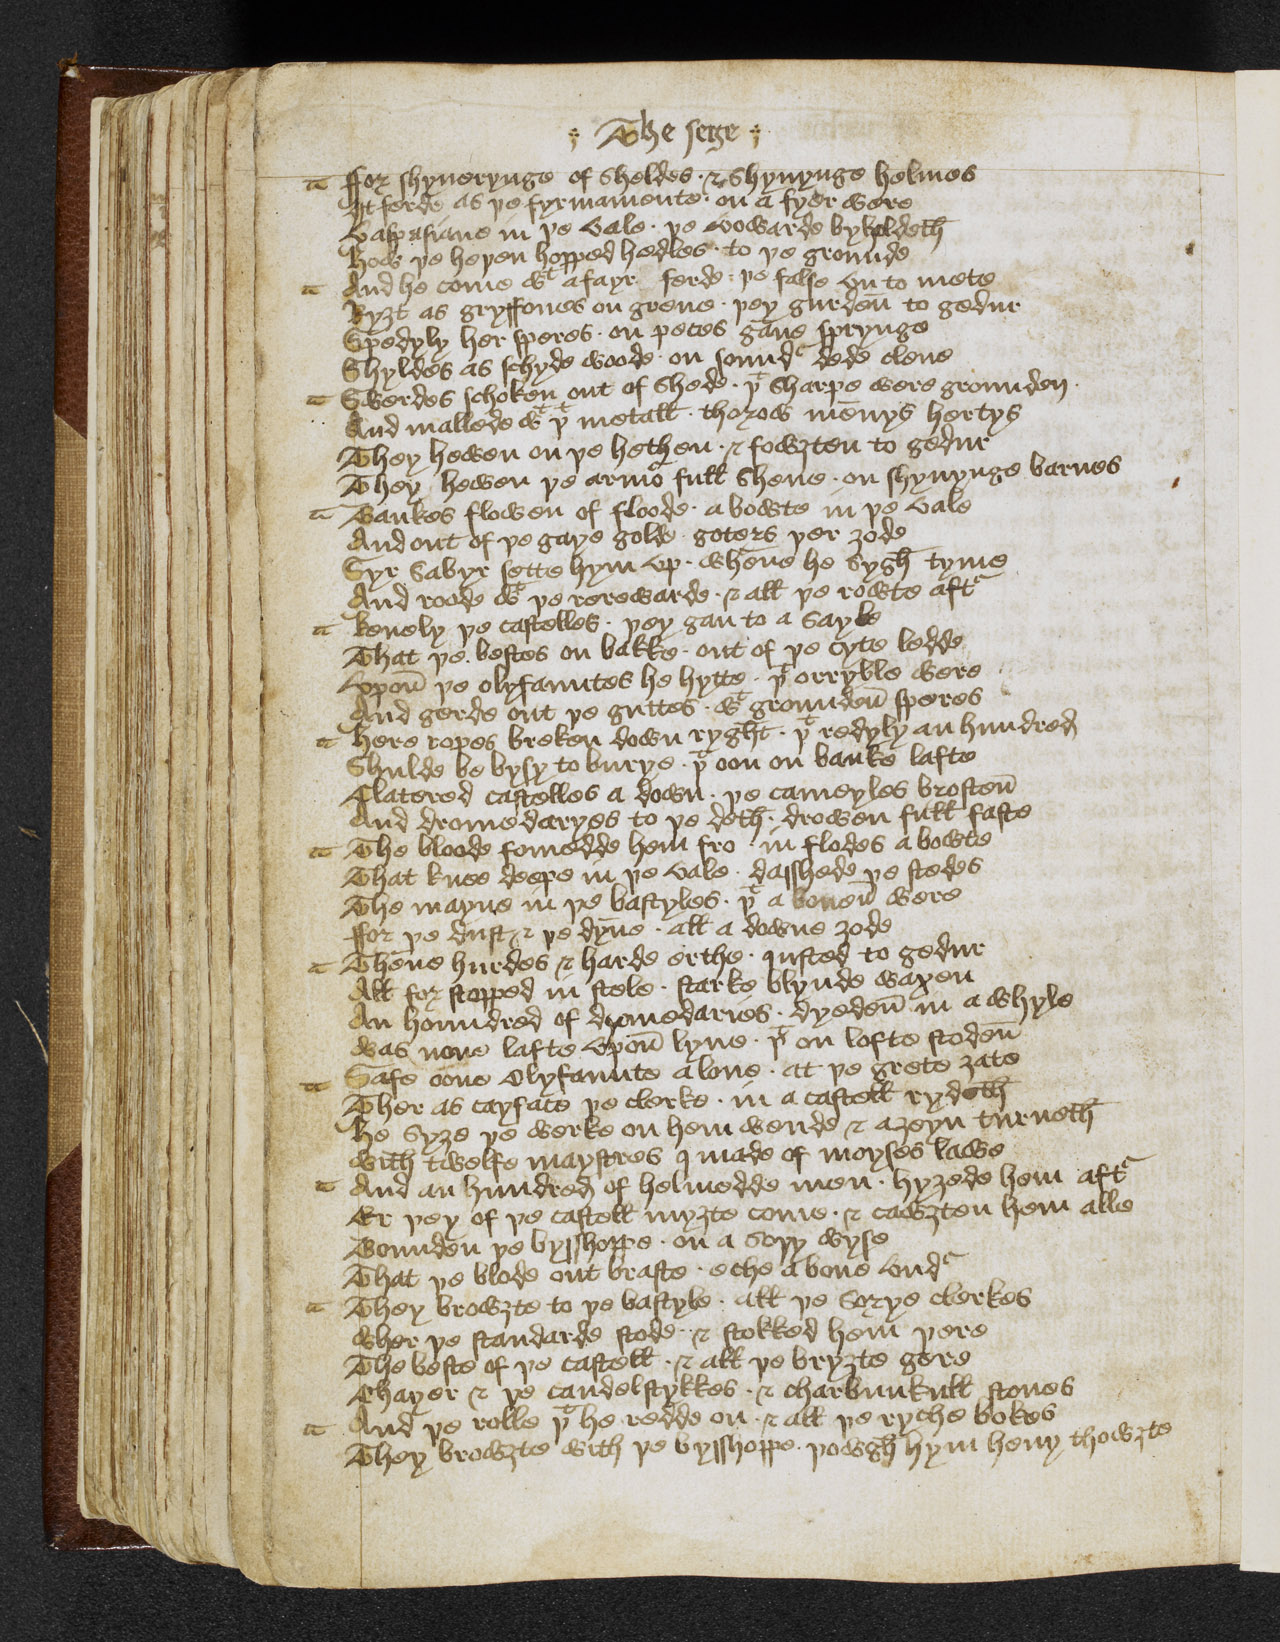 The sege
ffor shynerynge of sheldes · & shynynge helmes
It ferde as þe fyrmamente · on a fyer were
Vaspasiane in þe vale · þe vowarde byholdeth
how þe heþen hopped hedles · to þe grounde
And he come wt a fayr ferde · þe false vn to mete
Ryȝt as gryffones on grene · þey gurden to gedur
Spedyly her speres · on peces gane sprynge
Shyldes as schyde woode · on sound' dede cleue
Swerdes schoken out of shede · þt sharpe were grounden
And mallede wt þt metall · thorow mennys hertys
They hewen on þe hethen · & fowȝten to gedur
They hewen þe armor full shene · on shynynge barnes
Bankes flowen of floode · a bowte in þe vale
And out of þe gaye golde · goters þer ȝode
Syr Sabyr sette hym vp · whene he sygh tyme
And roode wt þe rerewarde · & all þe rowte aft'
kenely þe castelles · þey gan to a sayle
That þe bestes on bakke · out of þe cyte ledde
Vpon þe olyfauntes he hytte · þt orryble were
And gerde out þe guttes · wt grounden speres
here ropes breken down ryght · þt redyly an hundred
Shulde be bysy to burye · þt oon on banke lafte
Clatered castelles a down · þe cameyles brosten
And dromedaryes to þe deth · drowen full faste
The bloode fomedde hem fro · in flodes a bowte
That knee deepe in þe vale · dasshede þe stedes
The mayne in þe bastyles · þt a bouen were
ffor þe dust & þe dyne · all a downe ȝode
Thene hurdes & harde erthe · justed to gedur
All for stopped in stele · starke blynde waxen
An houndred of dromedaries · dyeden in a whyle
was none lafte vpon lyue · þt on lofte stoden
Safe oone Olyfaunte alone · at þe grete ȝate
Ther as cayface þe clerke · in a castell rydeth
he syȝe þe werke on hem wende & aȝeyn turneth
with twelfe maystres ymade of moyses lawe
And an hundred of helmedde men · hyȝede hem aft'
Er þey of þe castell myȝte come · & cawȝten hem alle
Bounden þe bysshoppe · on a sory wyse
That þe blode out braste · eche a bone vnd'
They browȝte to þe bastyle · all þe sorye clerkes
wher þe standarde stode · & stokked hem þere
The beste of þe castell · & all þe bryȝte gere
Chayer & þe candelstykkes · & charbunkull stones
And þe rolle þt he redde on · & all þe ryche bokes
They browȝte with þe bysshoppe · þowgh hym heuy thowȝte